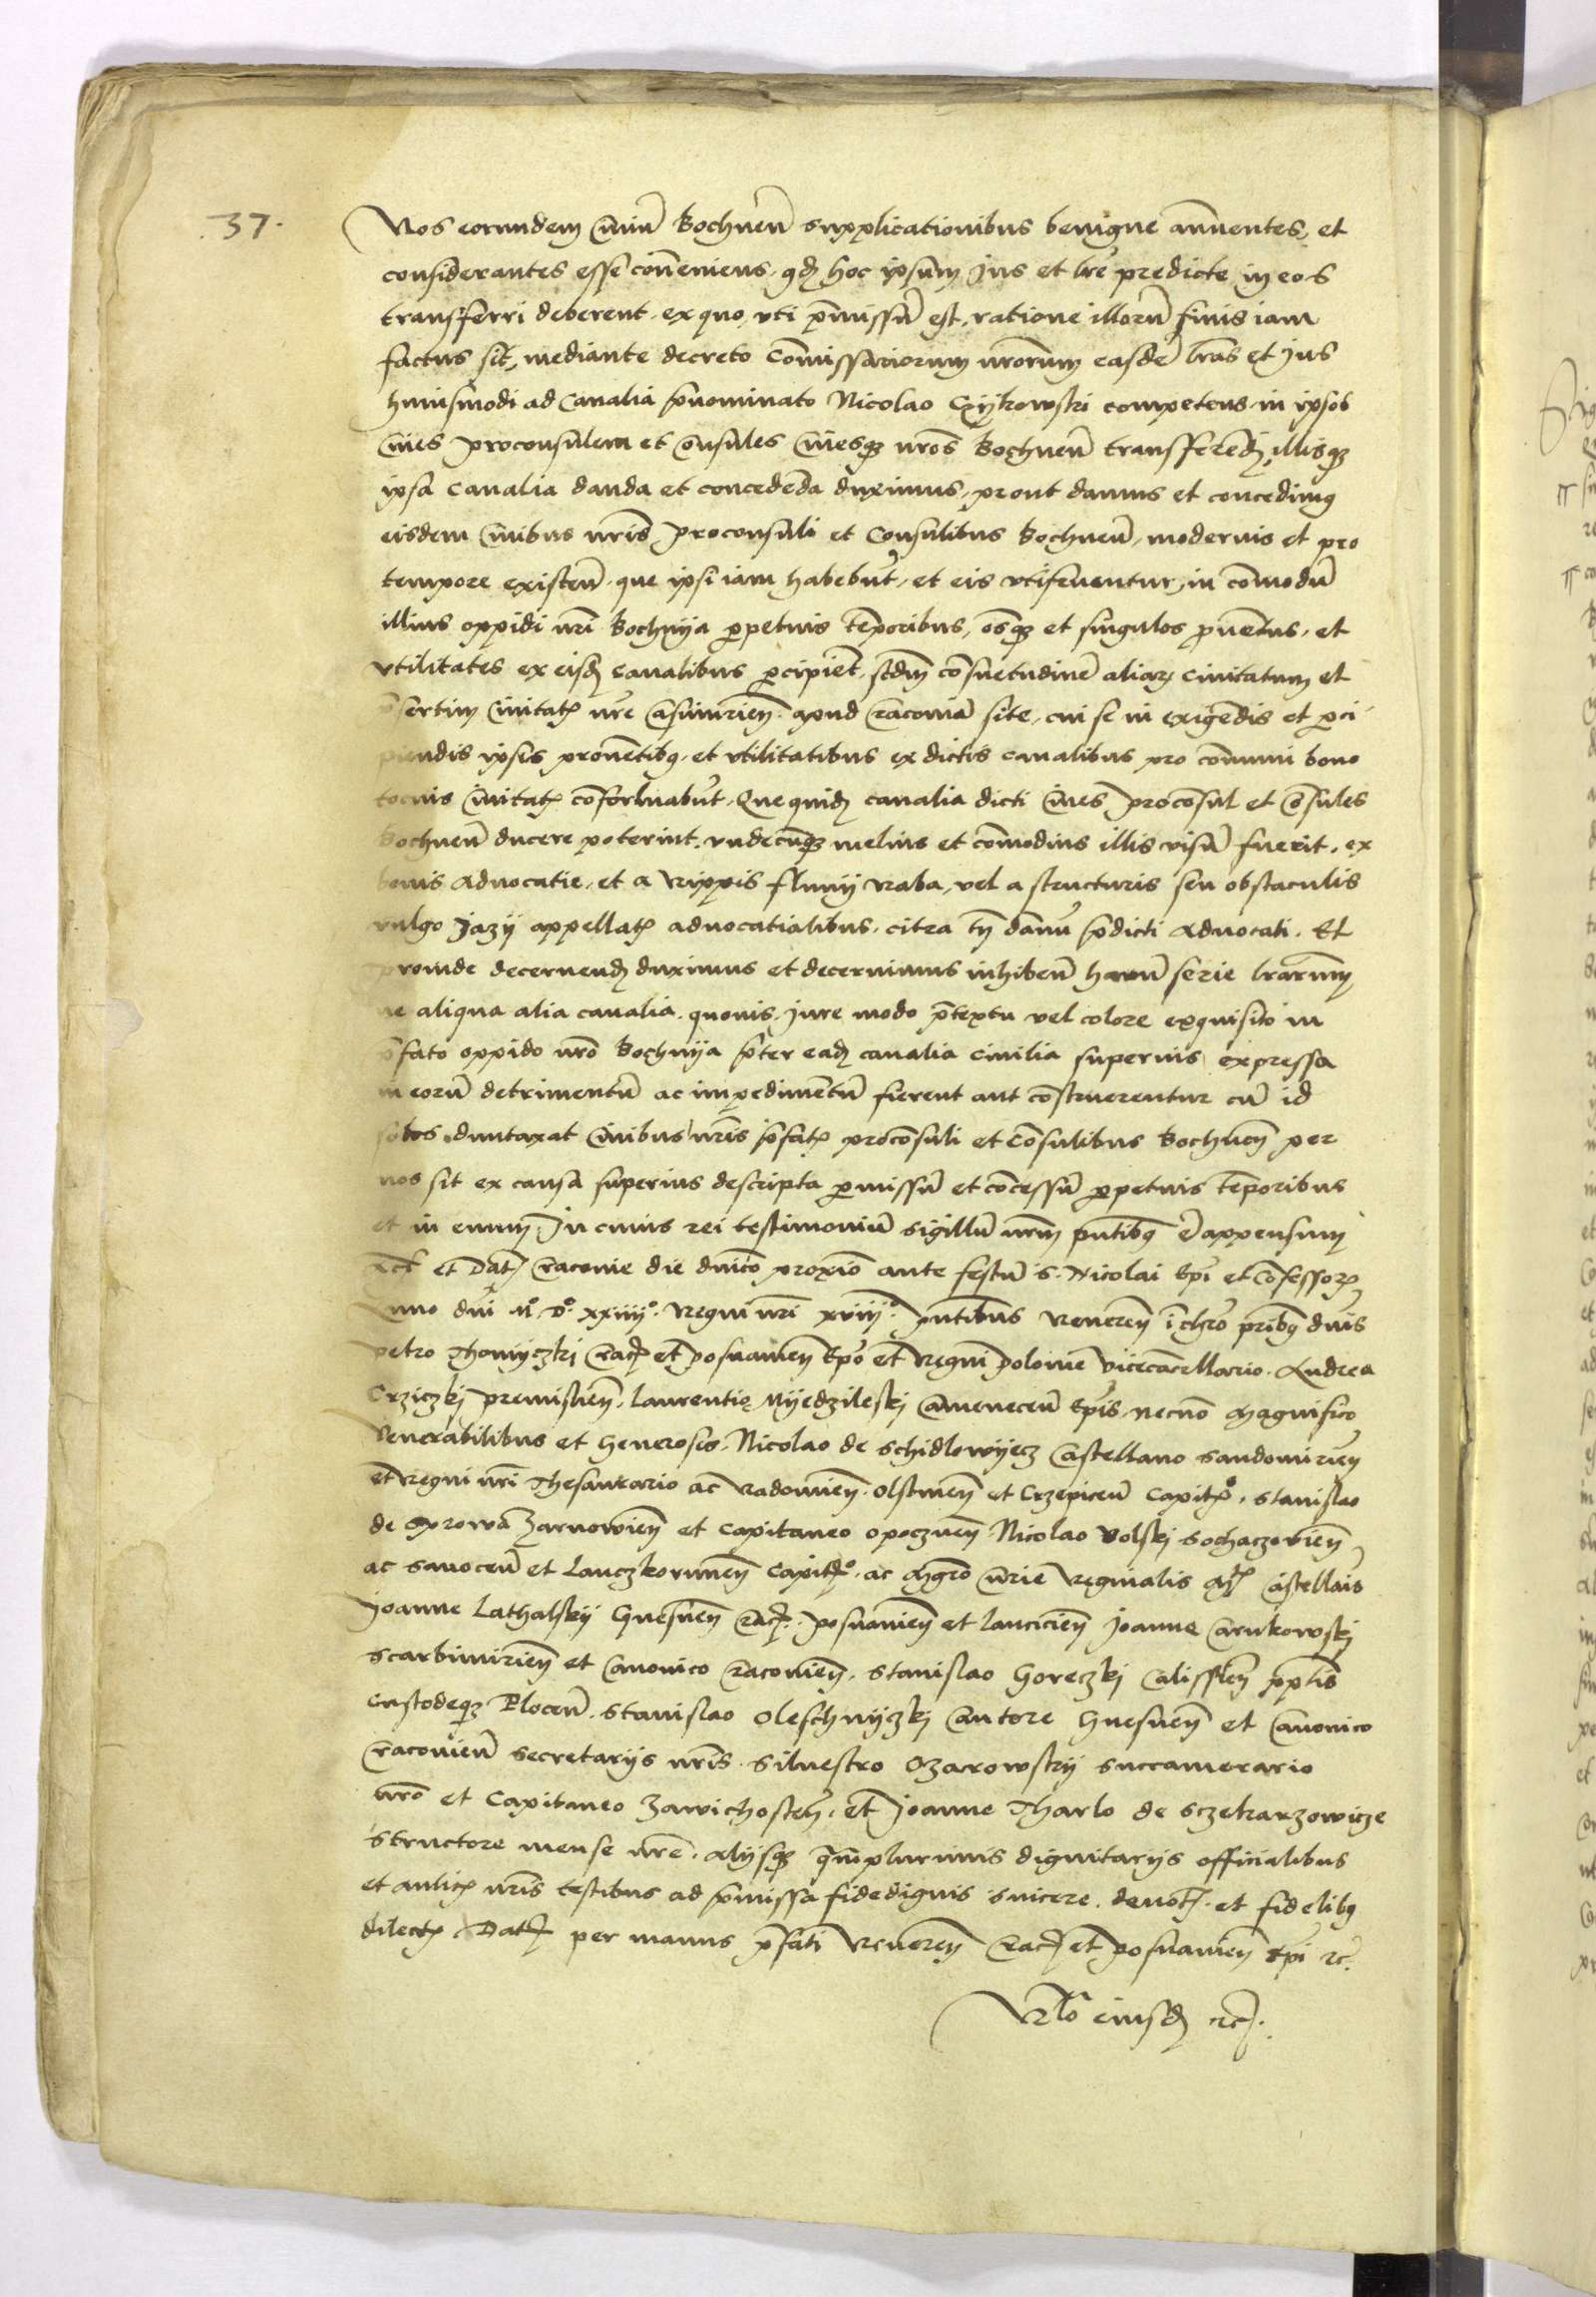 37.
Nos eorundem Civiu Bochnen supplicationibus benigne annuentes, et
considerantes esse conveniens, qd hoc ipsum Jus et lre predicte in eos
transferri deberent, ex quo, vti pmissu est, ratione illoru finis iam
factus sit, mediante decreto Comissariorum nrorum easde lras et Jus
huiusmodi ad Canalia pnominato Nicolao competens in ipsos
Cives Proconsulem et Consules Civesq nros Bochnen transferend, illisq
ipsa Canalia danda et concedenda duximus, prout damus et concedimus
eisdem Civibus nris Proconsuli et Consulibus Bochnen, modernis et pro
tempore existen, que ipsi iam habebut, et eis vtifruentur, in comodu
illius oppidi nri Bochnya ppetuis temporibus, oesq et singulos proventus, et
vtilitates ex eisd canalibus pcipient, scdm consuetudine aliar civitatum et
psertim Civitatis nre Casimirien apud Cracovia site, cui se in exigendis et pci
piendis ipsis proventibus, et vtilitatibus ex dictis canalibus pro communi bono
tocius Civitatis conformabut, Que quid canalia dicti Cives Proconsul et Consules
Bochnen ducere poterint, vndecunq melius et comodius illis visu fuerit, ex
bonis Advocatie, et a rippis fluvij Raba, vel a structuris seu obstaculis
vulgo Jazij appellatis advocatialibus, citra tn damnu pdicti Advocati. Et
proinde decernend duximus et decernimus inhiben haru serie lrarum
ne aliqua alia canalia quovis Jure modo ptextu vel colore exquisito in
pfato oppido nro Bochnya pter ead canalia civilia superius expressa
in eoru detrimentu ac impedimentu fierent aut construerentur cu id
solis duntaxat Civibus nris pfatis proconsuli et Consulibus Bochnen per
nos sit ex causa superius descripta pmissu et concessu ppetuis temporibus
et in evum In cuius rei testimoniu sigillu nrm pntibus e appensum
Act et Dat Cracovie die dnico proximo ante festu S. Nicolai Epi et Confessoris
Anno dni M° D° xxiiij° Regni nri xviij° Pntibus Reveren i chro pribus dnis
Petro Thomyczkj Crac et Posnanien Epo et Regni Polonie Vicecancellario. Andrea
Crziczkj Premislien, Laurentio Myedzileskj Camenecen Epis, necno Magnifico
Venerabilibus et Generosis, Nicolao de Schidlowyecz Castellano Sandomirien
et Regni nri Thesaurario ac Radomien, Olstinen et Crzepicen Capit°, Stanislao
de Sprowa Zarnowien et Capitaneo Opocznen Nicolao Volskj Sochaczovien
ac Sanocen et Lanczkorunen Capit°, ac Mgro Curie Reginalis Mtis Castellais
Joanne Lathalskij Gnesnen Crac Posnanien et Lancicien Joanne Carnkowskj
Scarbimirien et Canonico Cracovien, Stanislao Goreczkj Calissien pptis
Custodeq Plocen, Stanislao Oleschnyczkj Cantore Gnesnen et Canonico
Cracovien Secretarijs nris. Silvestro Ozarowskij Succamerario
nro et Capitaneo Zawichosten, et Joanne Tharlo de Sczekarzowicze
Structore mense nre, Alijsq qmplurimis dignitarijs officialibus
et aulicis nris testibus ad pmissa fidedignis sincere devot et fidelibus
dilectis Dat per manus pfati Reveren Crac et Posnanien Epi rc.
Rlo eiusd rc.